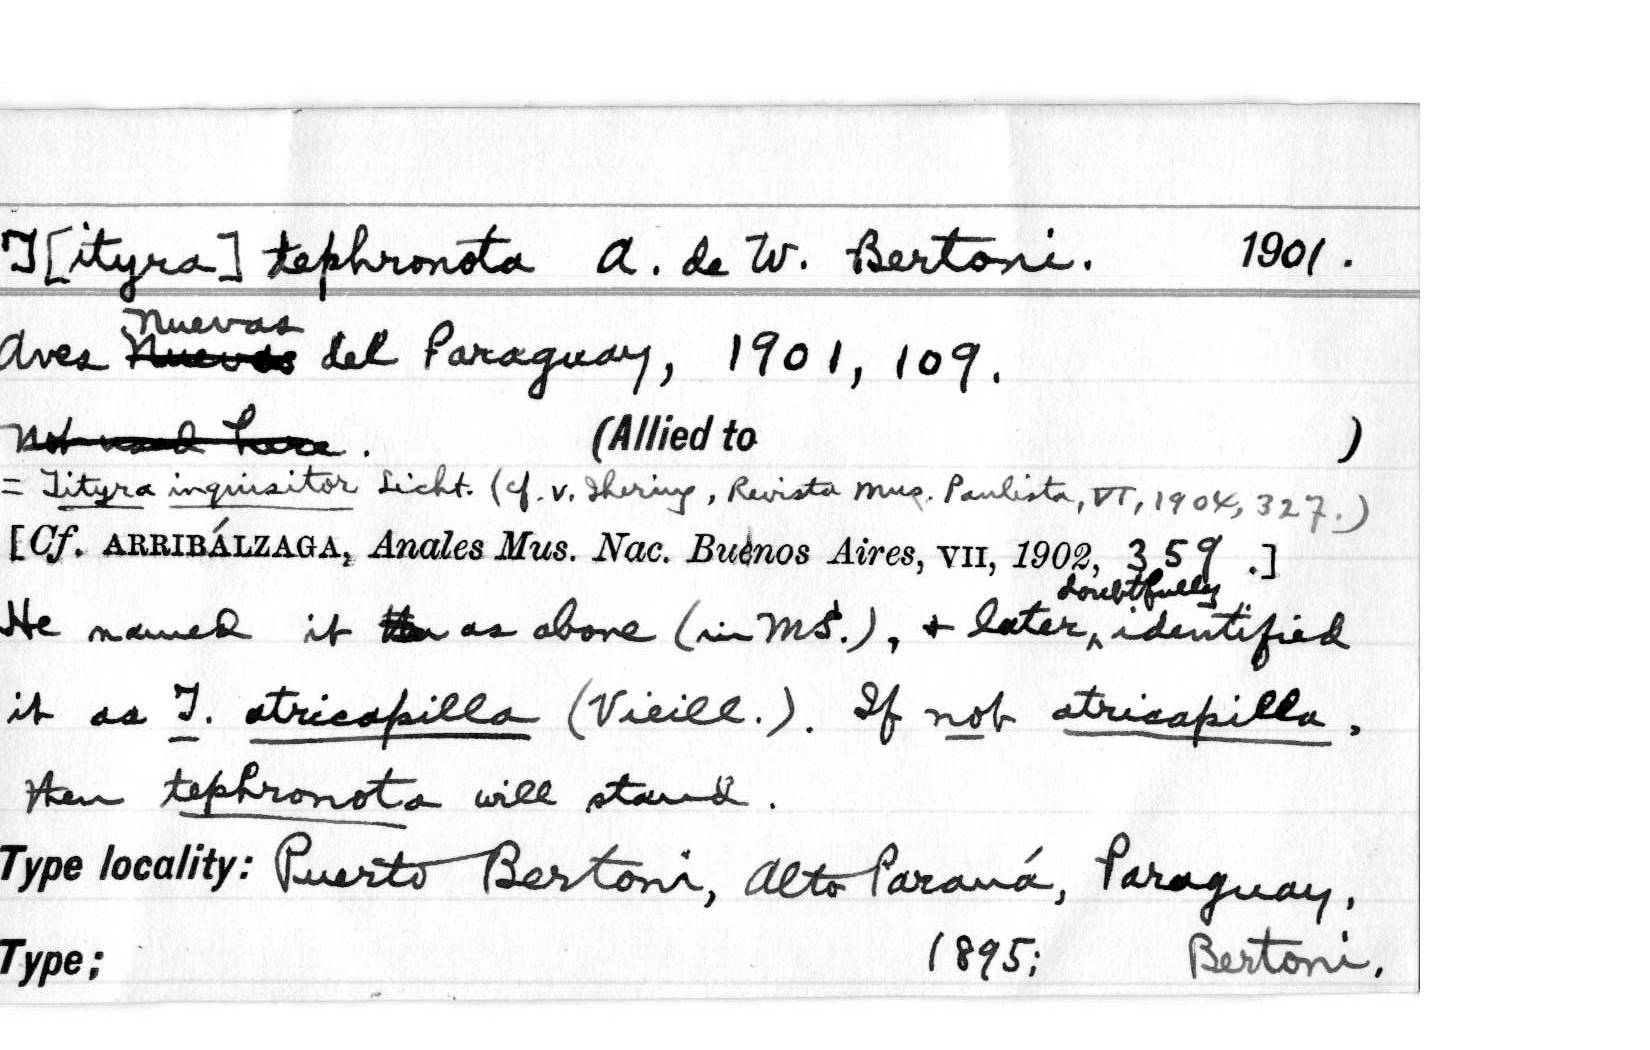 T[ityra] tephronota A. de W. Bertoni. 1901.
Nuevas
Aves Nuevas del Paraguay, 1901, 109.
Not used here. (Allied to )
= Tityra inquisitor Licht. (cf. v. Ihering, Revista Mus. Paulista, VI, 1904, 327.)
[Cf. ARRIBÁLZAGA, Anales Mus. Nac. Buenos Aires, VII, 1902, 359.]
doubtfully
He named it as above (in MS.), + later, identified
it as T. atricapilla (Vieill.). If not atricapilla,
then tephronota will stand.
Type locality: Puerto Bertoni, Alto Paraná, Paraguay.
Type; 1895; Bertoni.